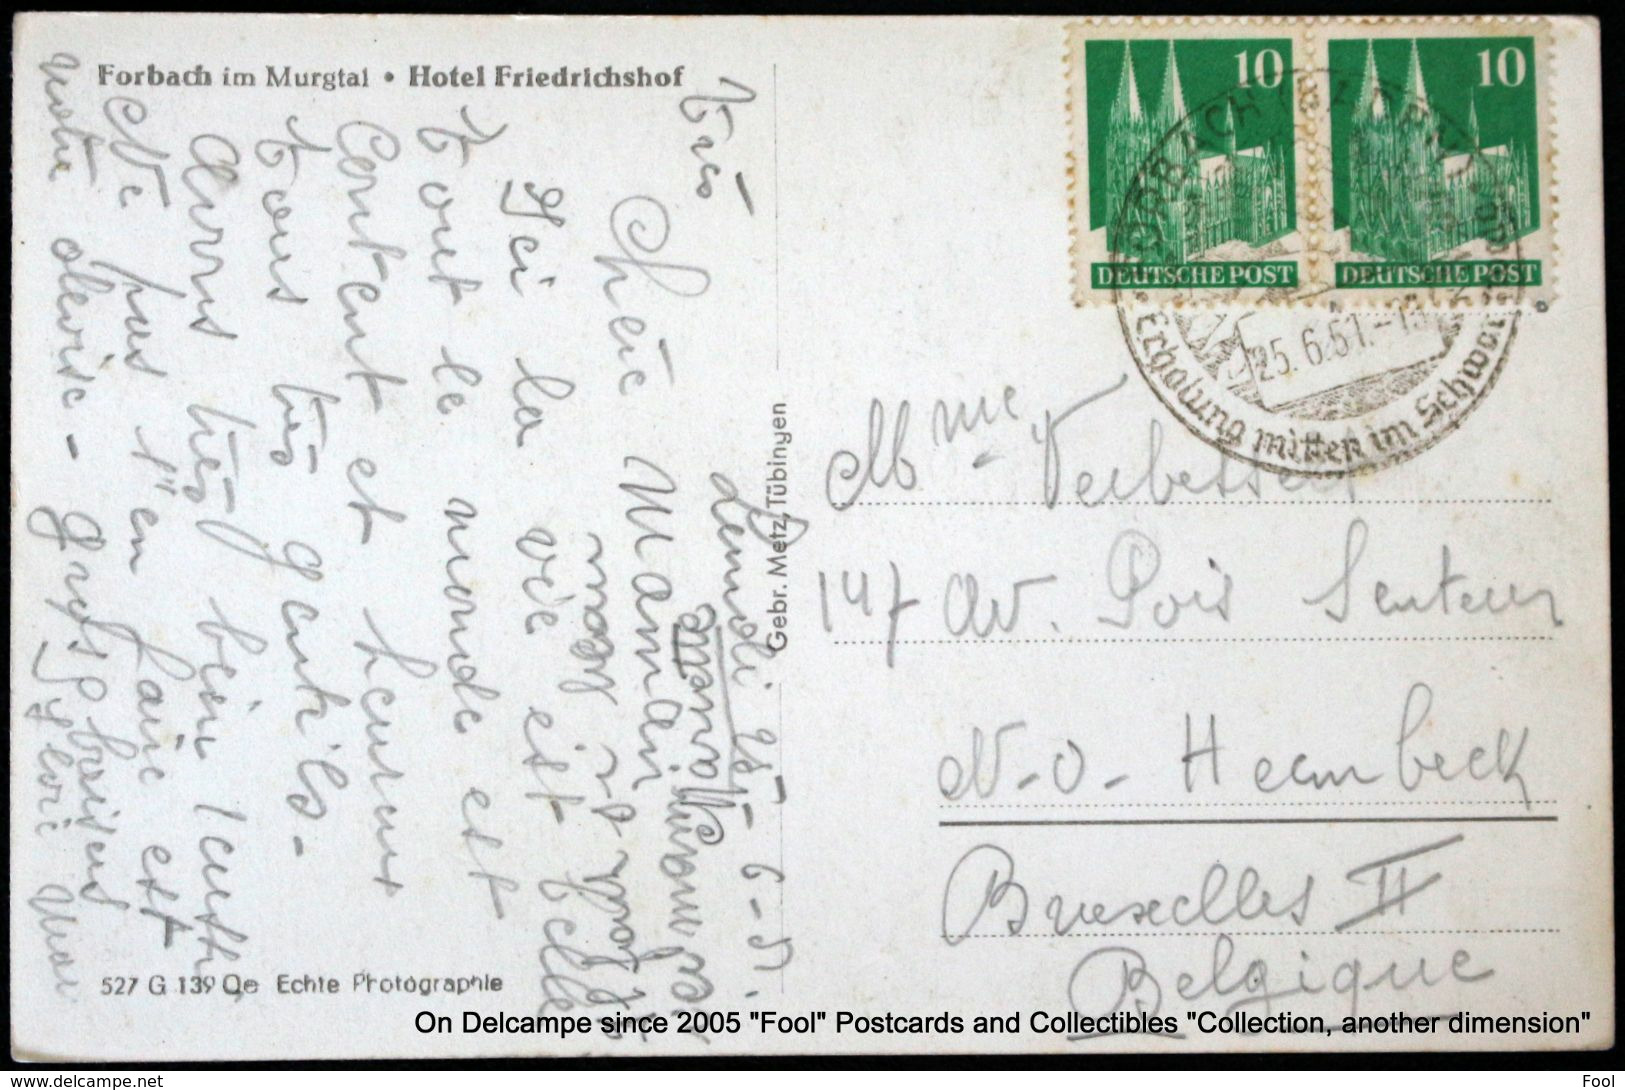 Forbach im Murgtal • Hotel Friedrichshof
10
10
DEUTSCHE POST
DEUTSCHE POST
25.6.51.-
Erholung mitten im Schwar
Gebr. Metz, Tübingen
Lundi 25-6-51.
Très
Chère Maman
Ici la vie est belle
Tout le monde est
Content et heureux
Tous très gentils-
Avons très bien
Ne pas s'en faire est
notre devise - Gros baisers
Mme Verbessem
147 Av. Pois Senteur
N-O- Heembeek
Bruxelles II
Belgique
527 G 139 De Echte Photographie
On Delcampe since 2005 "Fool" Postcards and Collectibles "Collection, another dimension"
www.delcampe.net
Fool